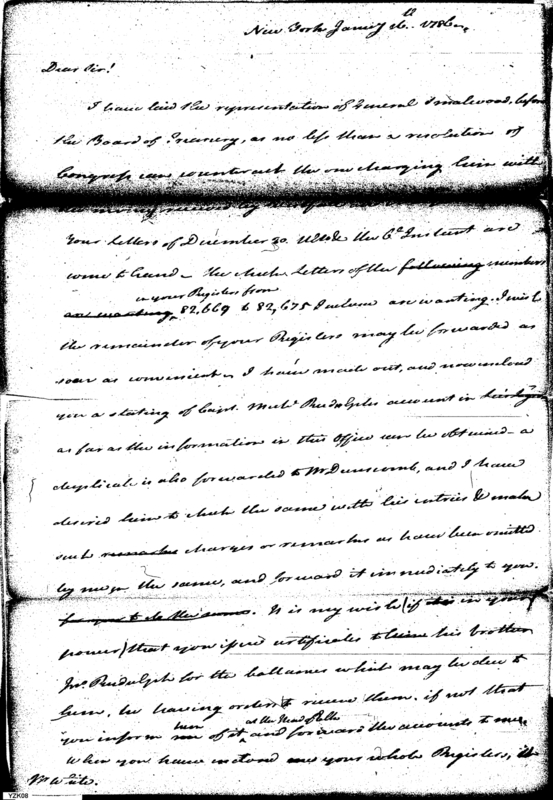 New York Janury 16th 1786.
Dear Sir!
I have laid the representation of General Smalwood, before
the Board of Treasury, as no less than a resolution of
Congress can counteract the one charging him with
the money received by
Your letters of December 30. the 6th Instant are
come to hand – The check Letters of the following numbers
in your Registers from
are wanting, 82,669 to 82,675 Inclusive are wanting. I wish
the remainder of your Registers may be forwarded as
soon as convenient – I have made out, and now inclosed
you a stating of Capt. Michl. Rudolphs account in
as far as the information in this Office can be obtained – a
duplicate is also forwarded to Mr Dunscomb, and I have
desired him to check the same with his entries & make
such remarks charges or remarks as have been omitted
by me in the same, and forward it immediately to you.
for you to do the same. It is my wish (if it is in your
power) that you issue certificates to his brother
Jno. Rudolph for the ballances which may be due to
him, he having orders to receive them. if not that
him as the Head of the
you inform me of it and forward the accounts to me.
When you have instored me your whole Registers,
Mr White.
YZK08